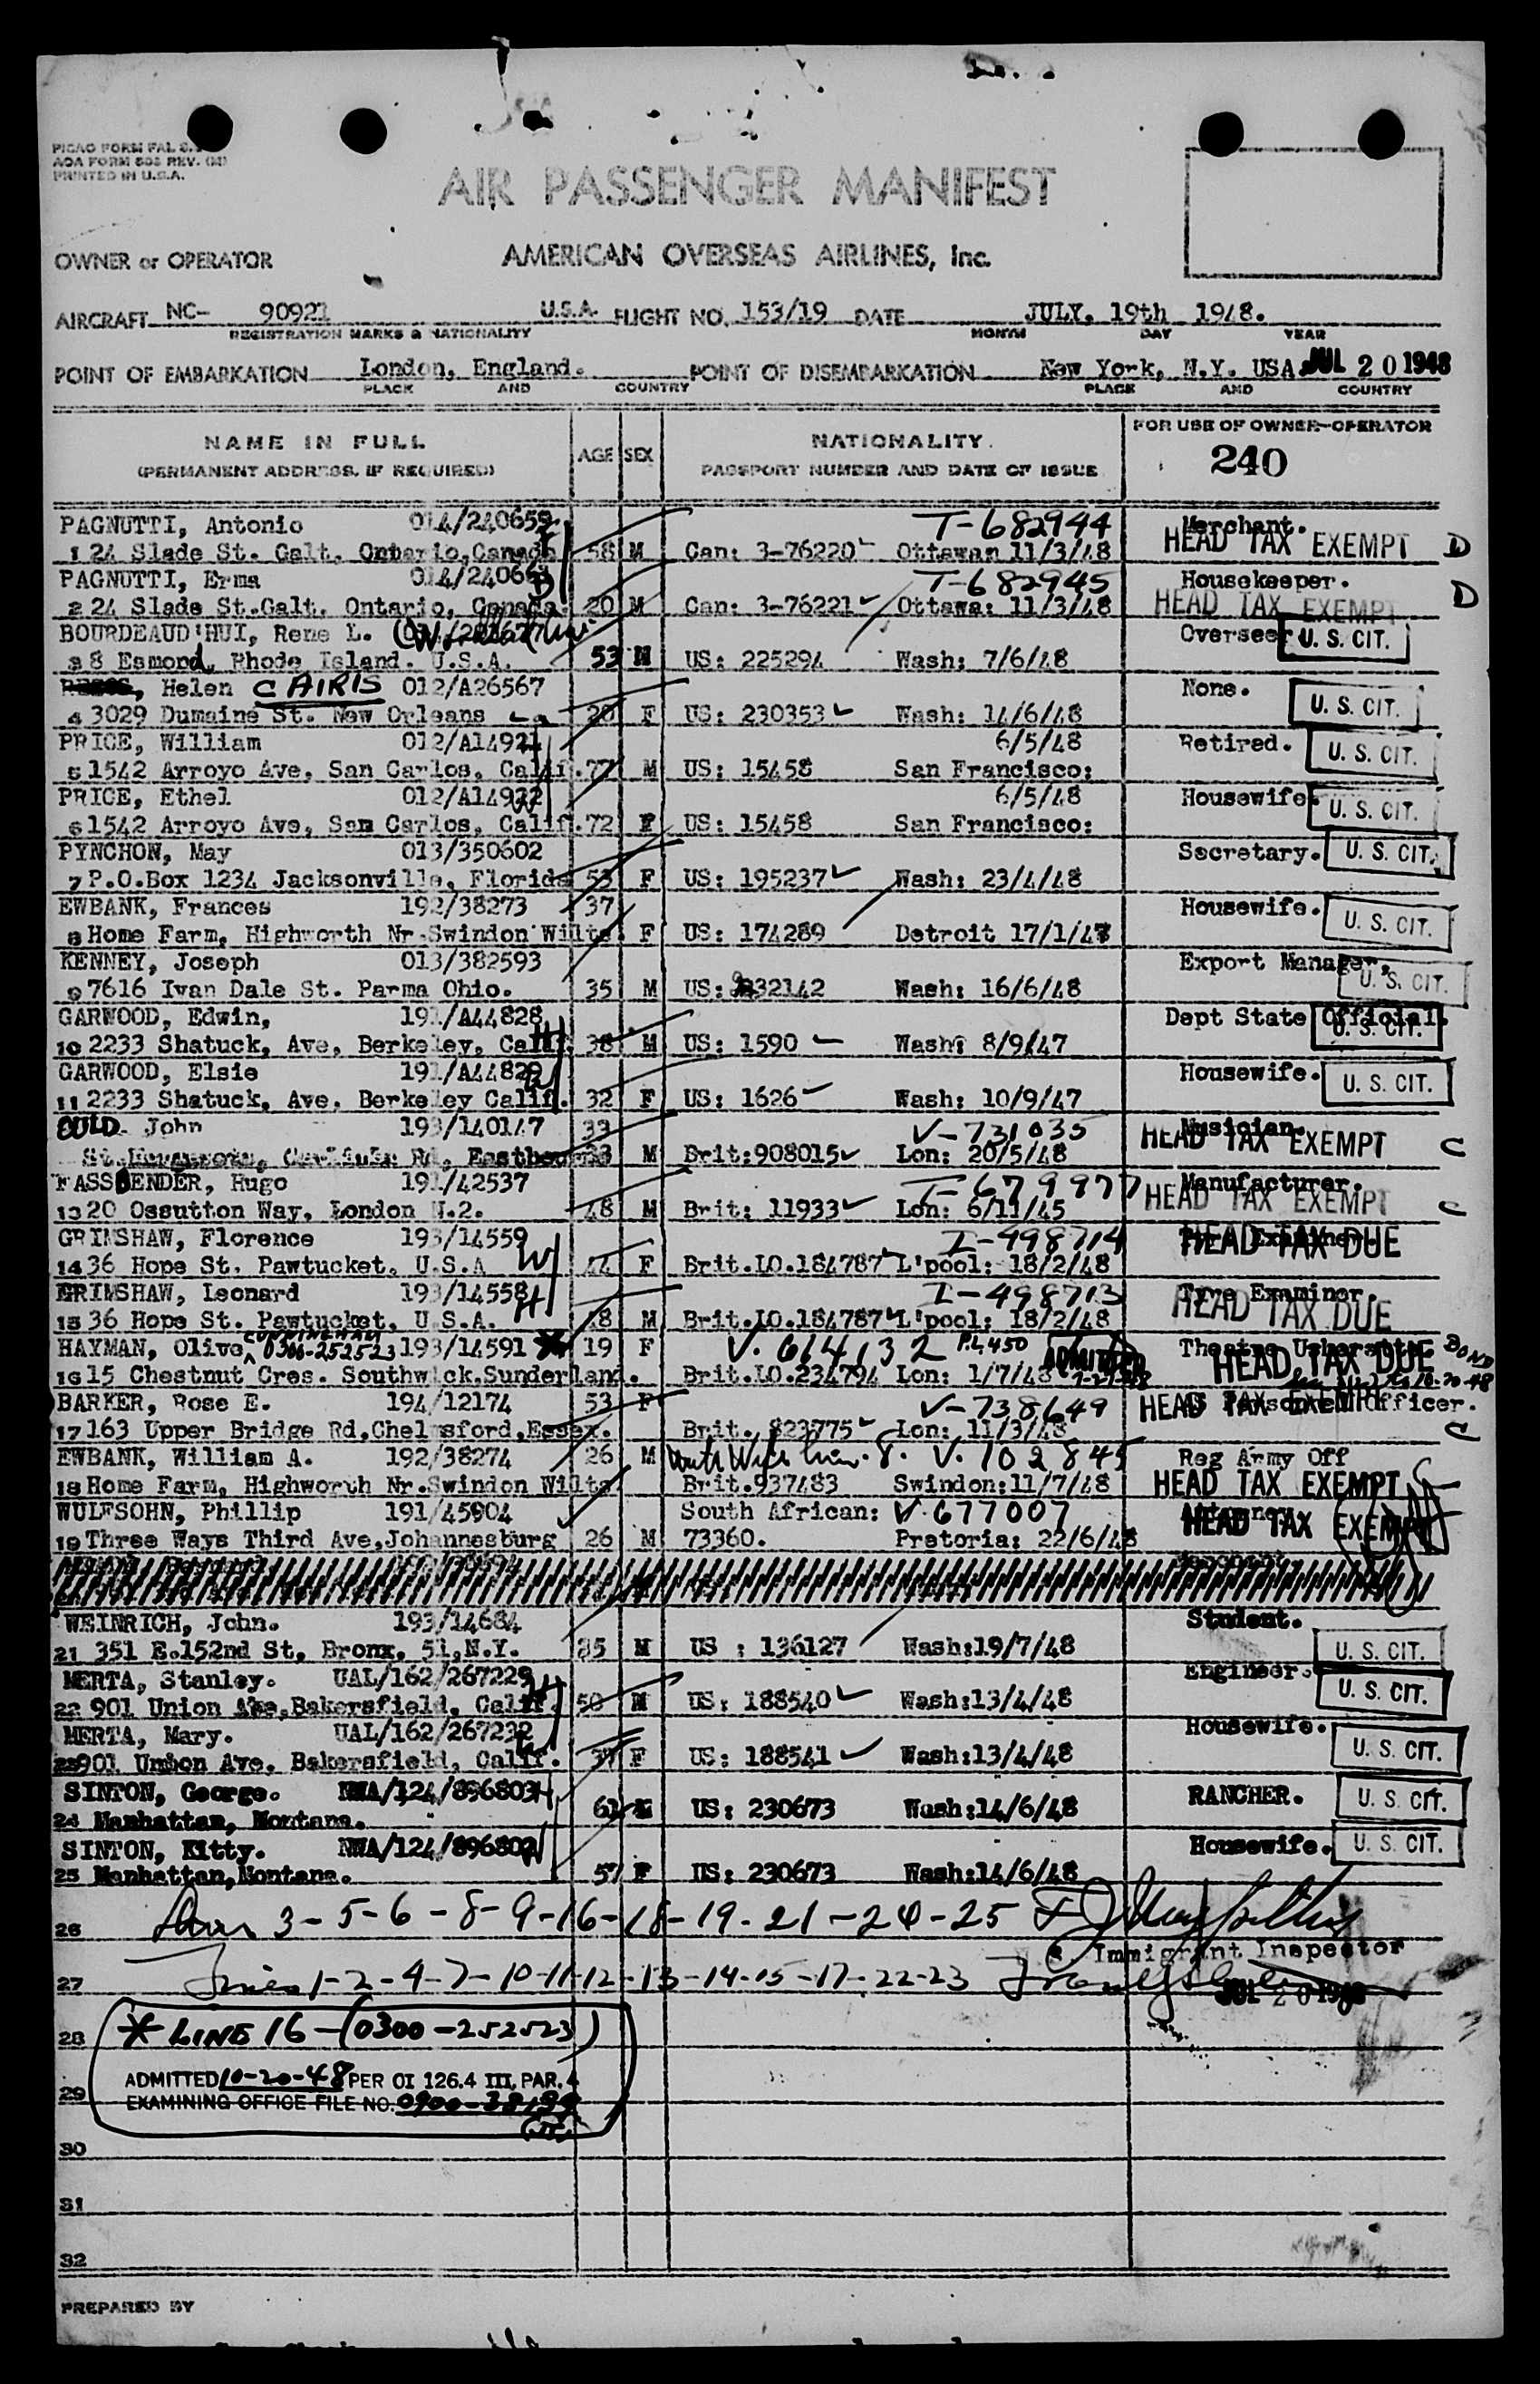 PICAO FORM FAL
AOA FORM 503 REV. (M)
PRINTED IN U.S.A.
AIR PASSENGER MANIFEST
OWNER or OPERATOR AMERICAN OVERSEAS AIRLINES, Inc.
AIRCRAFT NC- 90921 U.S.A. FLIGHT NO. 153/19 DATE JULY, 19th 1948.
REGISTRATION MARKS & NATIONALITY MONTH DAY YEAR
POINT OF EMBARKATION London, England. POINT OF DISEMBARKATION New York, N.Y. USA JUL 20 1948
PLACE AND COUNTRY PLACE AND COUNTRY
NAME IN FULL AGE SEX NATIONALITY. FOR USE OF OWNER-OPERATOR
(PERMANENT ADDRESS, IF REQUIRED) PASSPORT NUMBER AND DATE OF ISSUE 240
PAGNUTTI, Antonio 014/240659 T-682944 Merchant.
1 24 Slade St. Galt, Ontario, Canada 58 M Can: 3-76220 Ottawa: 11/3/48 HEAD TAX EXEMPT D
PAGNUTTI, Erma T-682945 Housekeeper.
2 24 Slade St. Galt, Ontario, Canada. 20 M Can: 3-76221 Ottawa: 11/3/48 HEAD TAX EXEMPT D
BOURDEAUD'HUI, Rene L. Overseer U. S. CIT.
3 8 Esmond, Rhode Island. U.S.A. 53 M US: 225294 Wash: 7/6/48
Helen CAIRIS 012/A26567 None.
4 3029 Dumaine St. New Orleans La 20 F US: 230353 Wash: 14/6/48 U. S. CIT.
PRICE, William 012/A14921 6/5/48 Retired.
5 1542 Arroyo Ave, San Carlos, Calif. 77 M US: 15458 San Francisco: U. S. CIT.
PRICE, Ethel 012/A14922 6/5/48 Housewife.
6 1542 Arroyo Ave, San Carlos, Calif. 72 F US: 15458 San Francisco: U. S. CIT.
PYNCHON, May 013/350602 Secretary. U. S. CIT.
7 P.O.Box 1234 Jacksonville, Florida 53 F US: 195237 Wash: 23/4/48
EWBANK, Frances 192/38273 37 Housewife.
8 Home Farm, Highworth Nr.Swindon Wilts F US: 174289 Detroit 17/1/47 U. S. CIT.
KENNEY, Joseph 013/382593 Export Manager.
9 7616 Ivan Dale St. Parma Ohio. 35 M US: 232142 Wash: 16/6/48 U. S. CIT.
GARWOOD, Edwin, 191/A44828 H Dept State Official.
10 2233 Shatuck, Ave, Berkeley, Calif. 38 M US: 1590 Wash: 8/9/47 U. S. CIT.
GARWOOD, Elsie 191/A44829 W Housewife.
11 2233 Shatuck, Ave. Berkeley Calif. 32 F US: 1626 Wash: 10/9/47 U. S. CIT.
OULD. John 193/140147 33 V-731035 Musician.
Rd, Eastbourne 33 M Brit:908015 Lon: 20/5/48 HEAD TAX EXEMPT C
FASSBENDER, Hugo 191/42537 T-679977 Manufacturer.
13 20 Ossutton Way, London N.2. 48 M Brit: 11933 Lon: 6/11/45 HEAD TAX EXEMPT C
GRIMSHAW, Florence 193/14559 W I-498714 HEAD TAX DUE
14 36 Hope St. Pawtucket, U.S.A 44 F Brit.LO.184787 L'pool: 18/2/48
GRIMSHAW, Leonard 193/14558 H I-498713 Tyre Examiner.
15 36 Hope St. Pawtucket, U.S.A. 48 M Brit.LO.184787 L'pool: 18/2/48 HEAD TAX DUE
HAYMAN, Olive CUNNINGHAM 0300-252523 193/14591 19 F V. 614132 P.L 450 ADMITTED Theatre Usherette. HEAD TAX DUE BOND
16 15 Chestnut Cres. Southwick.Sunderland. Brit.LO.234794 Lon: 1/7/48 10-20-48
BARKER, Rose E. 194/12174 53 F V-738649 Personnel Officer. HEAD TAX EXEMPT
17 163 Upper Bridge Rd,Chelmsford,Essex. Brit. 823775 Lon: 11/3/48 C
EWBANK, William A. 192/38274 26 M with Wife line 8. V. 102845 Reg Army Off
18 Home Farm, Highworth Nr.Swindon Wilts Brit.937483 Swindon:11/7/48 HEAD TAX EXEMPT
WULFSOHN, Phillip 191/45904 South African: V. 677007 Attorney
19 Three Ways Third Ave,Johannesburg 26 M 73360. Pretoria: 22/6/48 HEAD TAX EXEMPT
WEINRICH, John. 193/14684 Student.
21 351 E.152nd St, Bronx, 51,N.Y. 25 M US : 136127 Wash:19/7/48 U. S. CIT.
MERTA, Stanley. UAL/162/267229 H Engineer.
22 901 Union Ave,Bakersfield, Calif. 50 M US: 188540 Wash:13/4/48 U. S. CIT.
MERTA, Mary. UAL/162/267232 W Housewife.
23 901 Union Ave, Bakersfield, Calif. 37 F US: 188541 Wash:13/4/48 U. S. CIT.
SINTON, George. NWA/124/896803 H RANCHER. U. S. CIT.
24 Manhattan, Montana. 61 M US: 230673 Wash:14/6/48
SINTON, Kitty. NWA/124/896802 W Housewife. U. S. CIT.
25 Manhattan,Montana. 57 F US: 230673 Wash:14/6/48
26 Lines 3-5-6-8-9-16-18-19-21-24-25
Immigrant Inspector
27 Lines 1-2-4-7-10-11-12-13-14-15-17-22-23
JUL 20 1948
28 * LINE 16 - (0300-252523)
29 ADMITTED 10-20-48 PER OI 126.4 III, PAR. 4
EXAMINING OFFICE FILE NO.
30
31
32
PREPARED BY